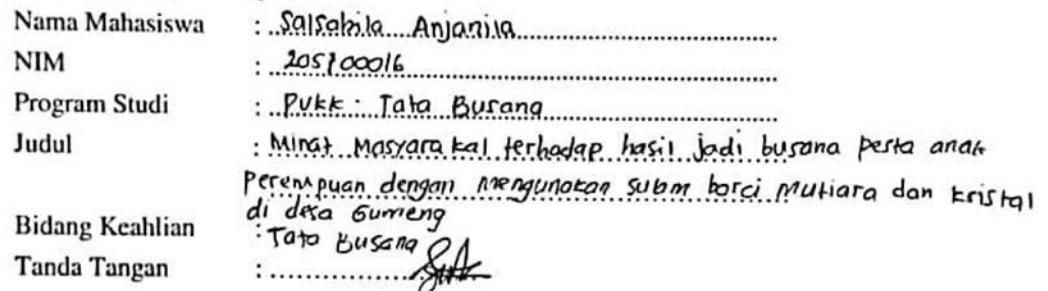 Nama Mahasiswa : Salsabila Anjanila
NIM : 205100016
Program Studi : PVKK - Tata Busana
Judul : Minat Masyarakat terhadap hasil jadi busana pesta anak
perempuan dengan mengunakan sulam borci mutiara dan kristal
di desa Gumeng
Bidang Keahlian : Tata Busana
Tanda Tangan :